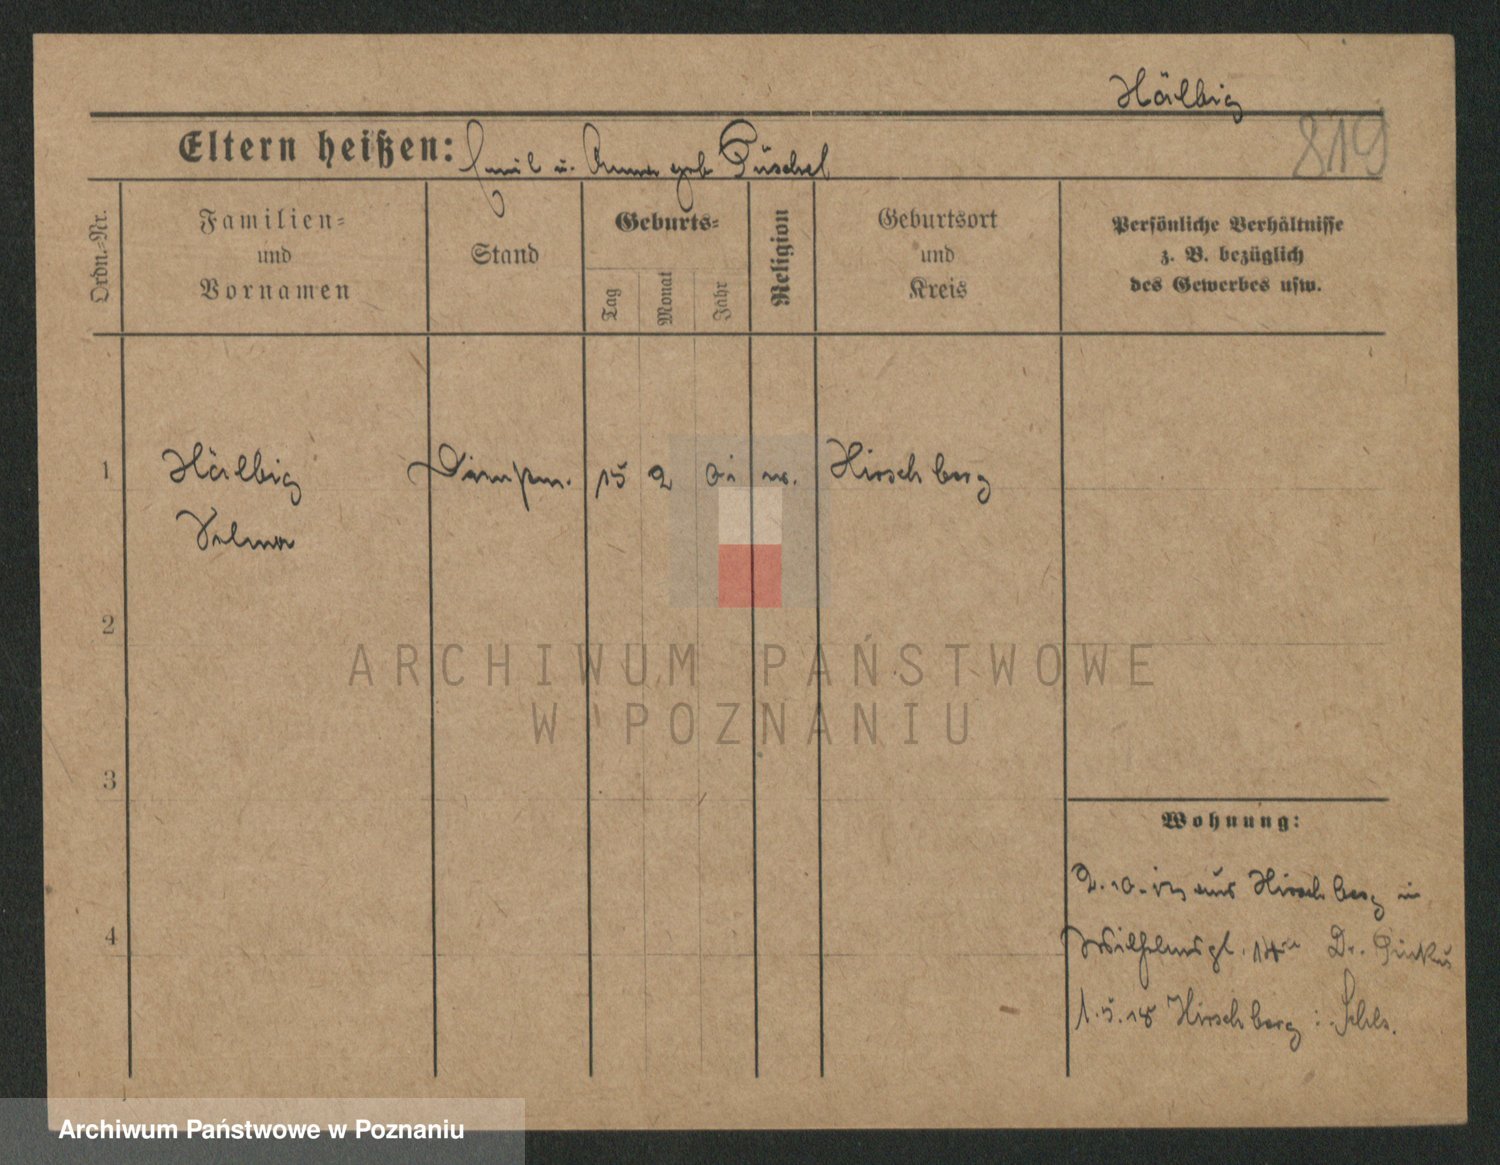 Hälbig
819
Eltern heißen: Emil u. Anna geb. Püschel
Ordn.-Nr.
Familien-
und
Vornamen
Stand
Geburts-
Tag
Monat
Jahr
Religion
Geburtsort
und
Kreis
Persönliche Verhältnisse
z. B. bezüglich
des Gewerbes usw.
1
Hälbig
15 2
Hirschberg
2
ARCHIWUM PAŃSTWOWE
W POZNANIU
3
Wohnung:
2.10. aus Hirschberg in
4
Wilhelmspl. 14 Dr.
1.5.18 Hirschberg i. Schles.
Archiwum Państwowe w Poznaniu